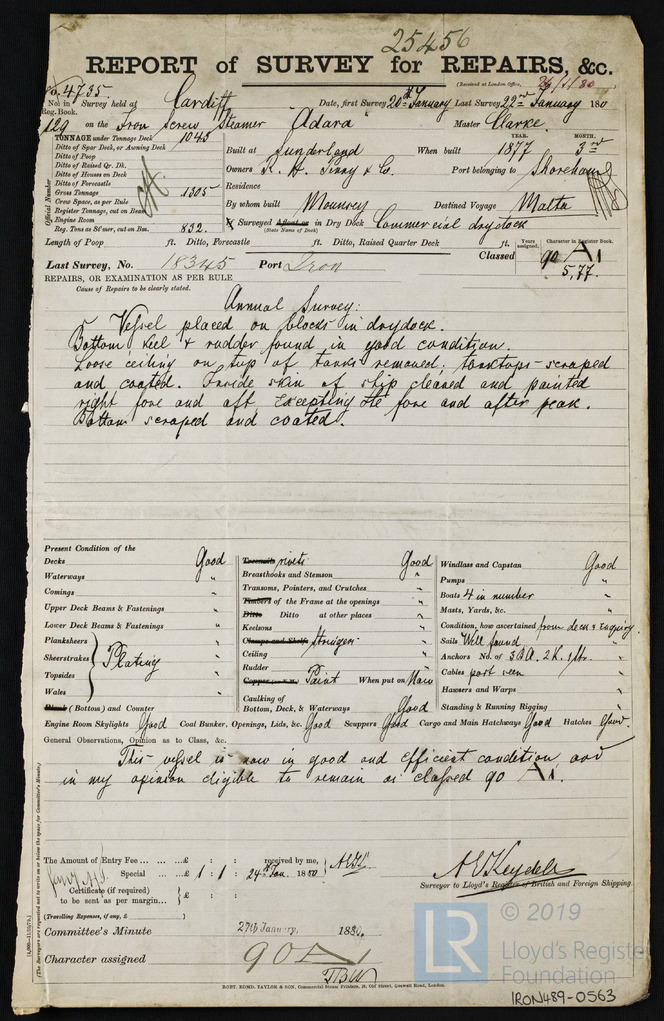 25456
REPORT of SURVEY for REPAIRS, &c.
(Received at London Office,
No. 4735.
No. in Survey held at Cardiff Date, first Survey 20th January Last Survey 22nd January 1880
Reg. Book.
129 on the Iron Screw Steamer "Adara" Master Clarke.
TONNAGE under Tonnage Deck 1045
Ditto of Spar Deck, or Awning Deck
Ditto of Poop
Ditto of Raised Qr. Dk.
Ditto of Houses on Deck
Ditto of Forecastle
Gross Tonnage 1305
Crew Space, as per Rule
Register Tonnage, cut on Beam
Engine Room
Reg. Tons as St'mer, cut on Bm. 832.
Official Number
YEAR. MONTH.
Built at Sunderland When built 1877 3rd
Owners R. H. Penny & Co. Port belonging to Shoreham
Residence
By whom built Mounsey Destined Voyage Malta
If Surveyed Afloat or in Dry Dock Commercial dry dock
(State Name of Dock)
Length of Poop ft. Ditto, Forecastle ft. Ditto, Raised Quarter Deck ft.
Years assigned. Character in Register Book.
Classed 90 A1
5,77.
Last Survey, No. 18345 Port Iron
REPAIRS, OR EXAMINATION AS PER RULE
Cause of Repairs to be clearly stated.
Annual Survey:
Vessel placed on blocks in drydock.
Bottom keel & rudder found in good condition.
Loose ceiling on top of tanks removed; tanktops scraped
and coated. Inside skin of ship cleaned and painted
right fore and aft excepting the fore and after peak.
Bottom scraped and coated.
Present Condition of the
Decks Good
Waterways "
Comings "
Upper Deck Beams & Fastenings "
Lower Deck Beams & Fastenings "
Planksheers
Sheerstrakes
Topsides
Wales
Plating "
(Bottom) and Counter "
Treenails rivets Good
Breasthooks and Stemson "
Transoms, Pointers, and Crutches "
Timbers of the Frame at the openings "
Ditto Ditto at other places "
Keelsons "
Clamps and Shelfs stringers "
Ceiling "
Rudder "
Copper Paint When put on Now
Caulking of
Bottom, Deck, & Waterways Good
Windlass and Capstan Good
Pumps "
Boats 4 in number "
Masts, Yards, &c. "
Condition, how ascertained from deck & Enquiry.
Sails Well found "
Anchors No. of 3 B.A. 2 K. 1 Str. "
Cables part seen "
Hawsers and Warps "
Standing & Running Rigging "
Engine Room Skylights Good Coal Bunker, Openings, Lids, &c. Good Scuppers Good Cargo and Main Hatchways Good Hatches Good.
General Observations, Opinion as to Class, &c.
This vessel is now in good and efficient condition, and
in my opinion eligible to remain as classed 90 A1.
The Amount of Entry Fee ... ... £ : : received by me,
Special ... ... £ 1 : 1 : 24th Jan. 1880
Certificate (if required)
to be sent as per margin... £ : :
(Travelling Expenses, if any, £ )
A E Keydell
Surveyor to Lloyd's Register of British and Foreign Shipping.
Committee's Minute 27th January, 1880.
Character assigned 90 A1
ROBT. EDMD. TAYLOR & SON, Commercial Steam Printers, 19, Old Street, Goswell Road, London.
(The Surveyors are requested not to write on or below the space for Committee's Minute.)
LR
© 2019
Lloyd's Register
Foundation
IRON489-0563